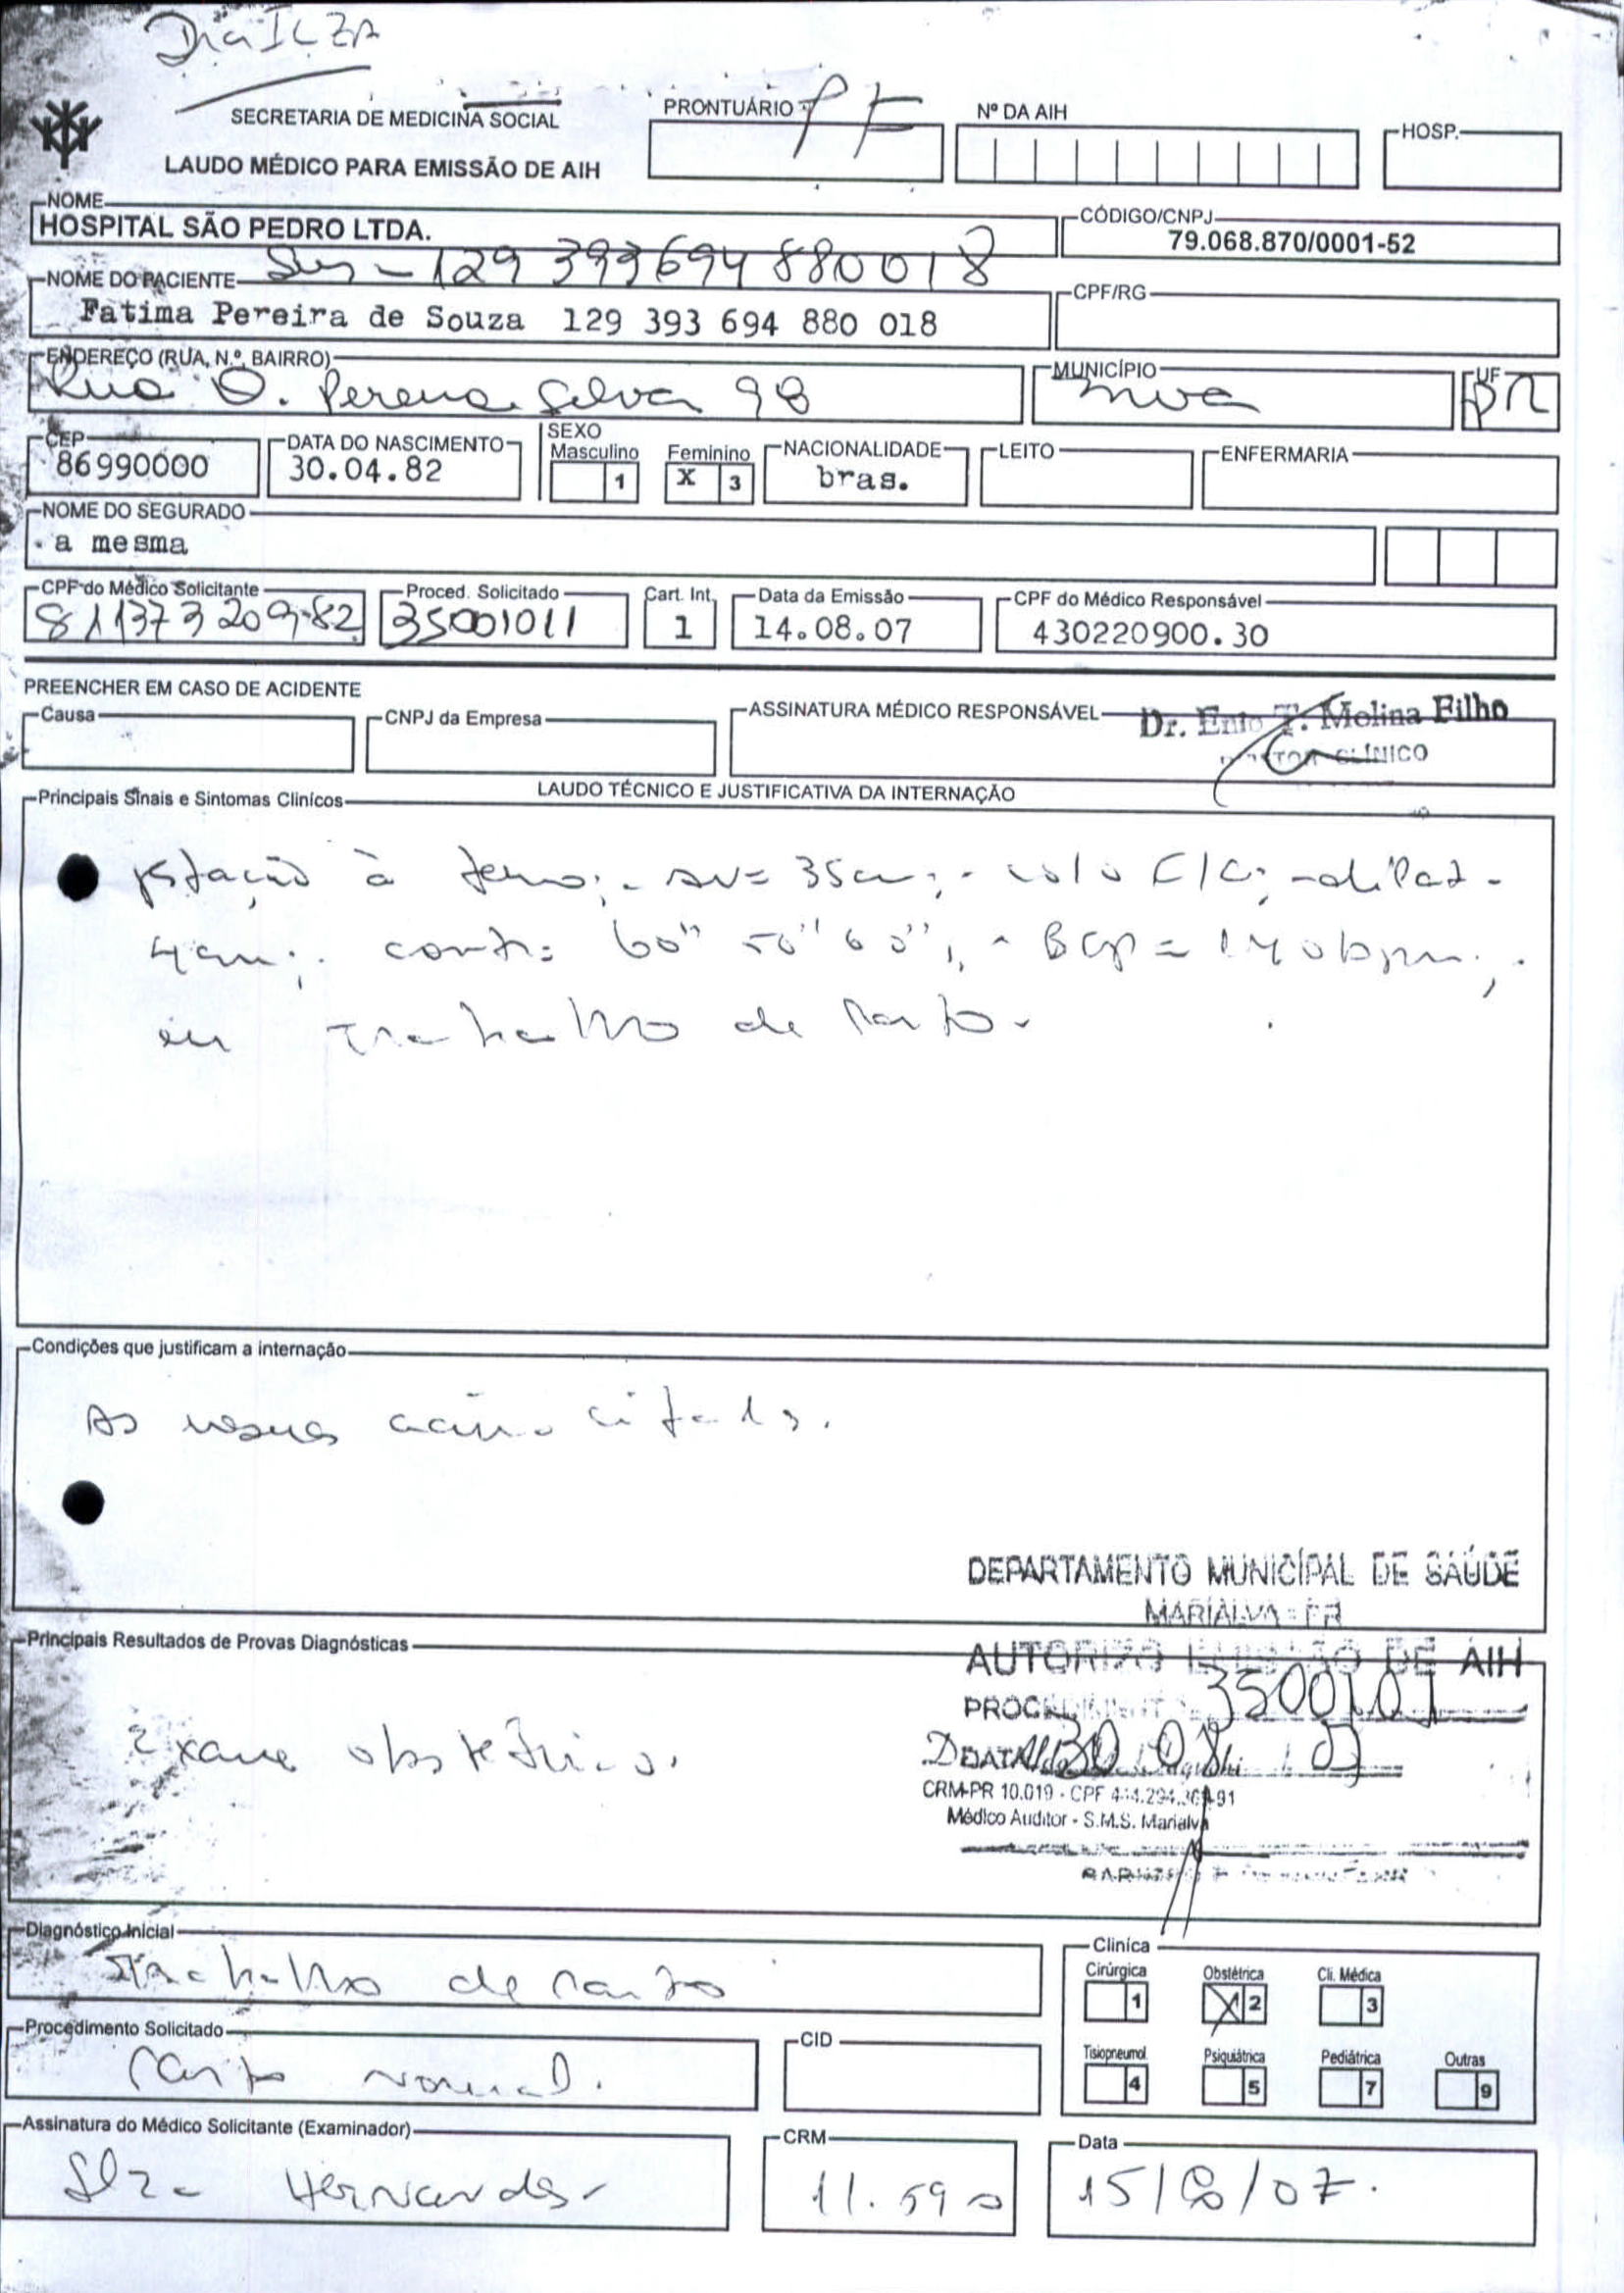 Dra ILZA
SECRETARIA DE MEDICINA SOCIAL
LAUDO MÉDICO PARA EMISSÃO DE AIH
PRONTUÁRIO PF
Nº DA AIH
HOSP.
NOME
HOSPITAL SÃO PEDRO LTDA.
CÓDIGO/CNPJ
79.068.870/0001-52
Sus - 129 393694 880018
NOME DO PACIENTE
Fatima Pereira de Souza 129 393 694 880 018
CPF/RG
ENDEREÇO (RUA, N.º, BAIRRO)
Rua O. Pereira Silva 98
MUNICÍPIO
mva
UF
PR
CEP
86990000
DATA DO NASCIMENTO
30.04.82
SEXO
Masculino 1
Feminino X 3
NACIONALIDADE
bras.
LEITO
ENFERMARIA
NOME DO SEGURADO
a mesma
CPF do Médico Solicitante
811373209-82
Proced. Solicitado
35001011
Cart. Int.
1
Data da Emissão
14.08.07
CPF do Médico Responsável
430220900.30
PREENCHER EM CASO DE ACIDENTE
Causa
CNPJ da Empresa
ASSINATURA MÉDICO RESPONSÁVEL
Dr. Enio T. Molina Filho
CLÍNICO
LAUDO TÉCNICO E JUSTIFICATIVA DA INTERNAÇÃO
Principais Sinais e Sintomas Clinícos
gestação à termo; - AU= 35cm; - colo C/C; - dilat -
4cm; contr: 60" 50" 60"; - BCF = 140bpm;
em trabalho de parto.
Condições que justificam a internação
As mesmas acima citadas.
DEPARTAMENTO MUNICÍPAL DE SAÚDE
MARIALVA - PR
Principais Resultados de Provas Diagnósticas
AUTORIZO EMISSÃO DE AIH
35001011
Exame obstétrico.
DATA 30 08 07
CRM-PR 10.019 - CPF
Médico Auditor - S.M.S. Marialva
Diagnóstico Inicial
Trabalho de parto
Clínica
Cirúrgica 1
Obstétrica X 2
Cli. Médica 3
Tisiopneumol 4
Psiquiátrica 5
Pediátrica 7
Outras 9
Procedimento Solicitado
Parto normal.
CID
Assinatura do Médico Solicitante (Examinador)
Ilza Hernandes
CRM
11.590
Data
15/8/07.